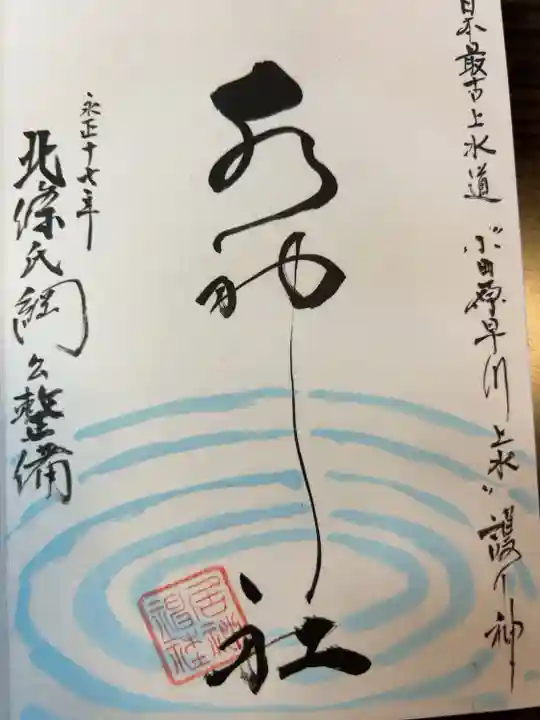 日本最古上水道 〝小田原早川上水〟 護り神
神社
永正十七年
北條氏綱公整備
居神神社